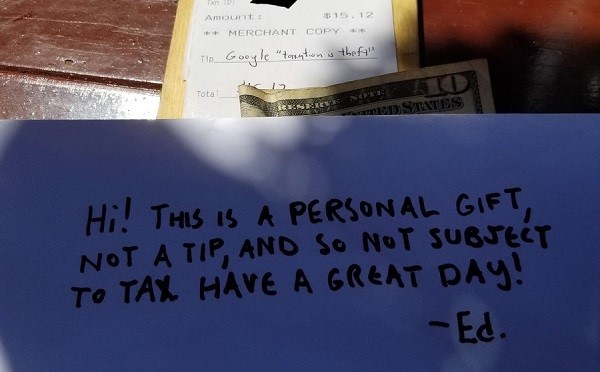 Txn ID
Amount: $15.12
** MERCHANT COPY **
Tip Google "taxation is theft"
Total
10
RESERVE NOTE
UNITED STATES
Hi! THIS IS A PERSONAL GIFT,
NOT A TIP, AND SO NOT SUBJECT
TO TAX HAVE A GREAT DAY!
-Ed.